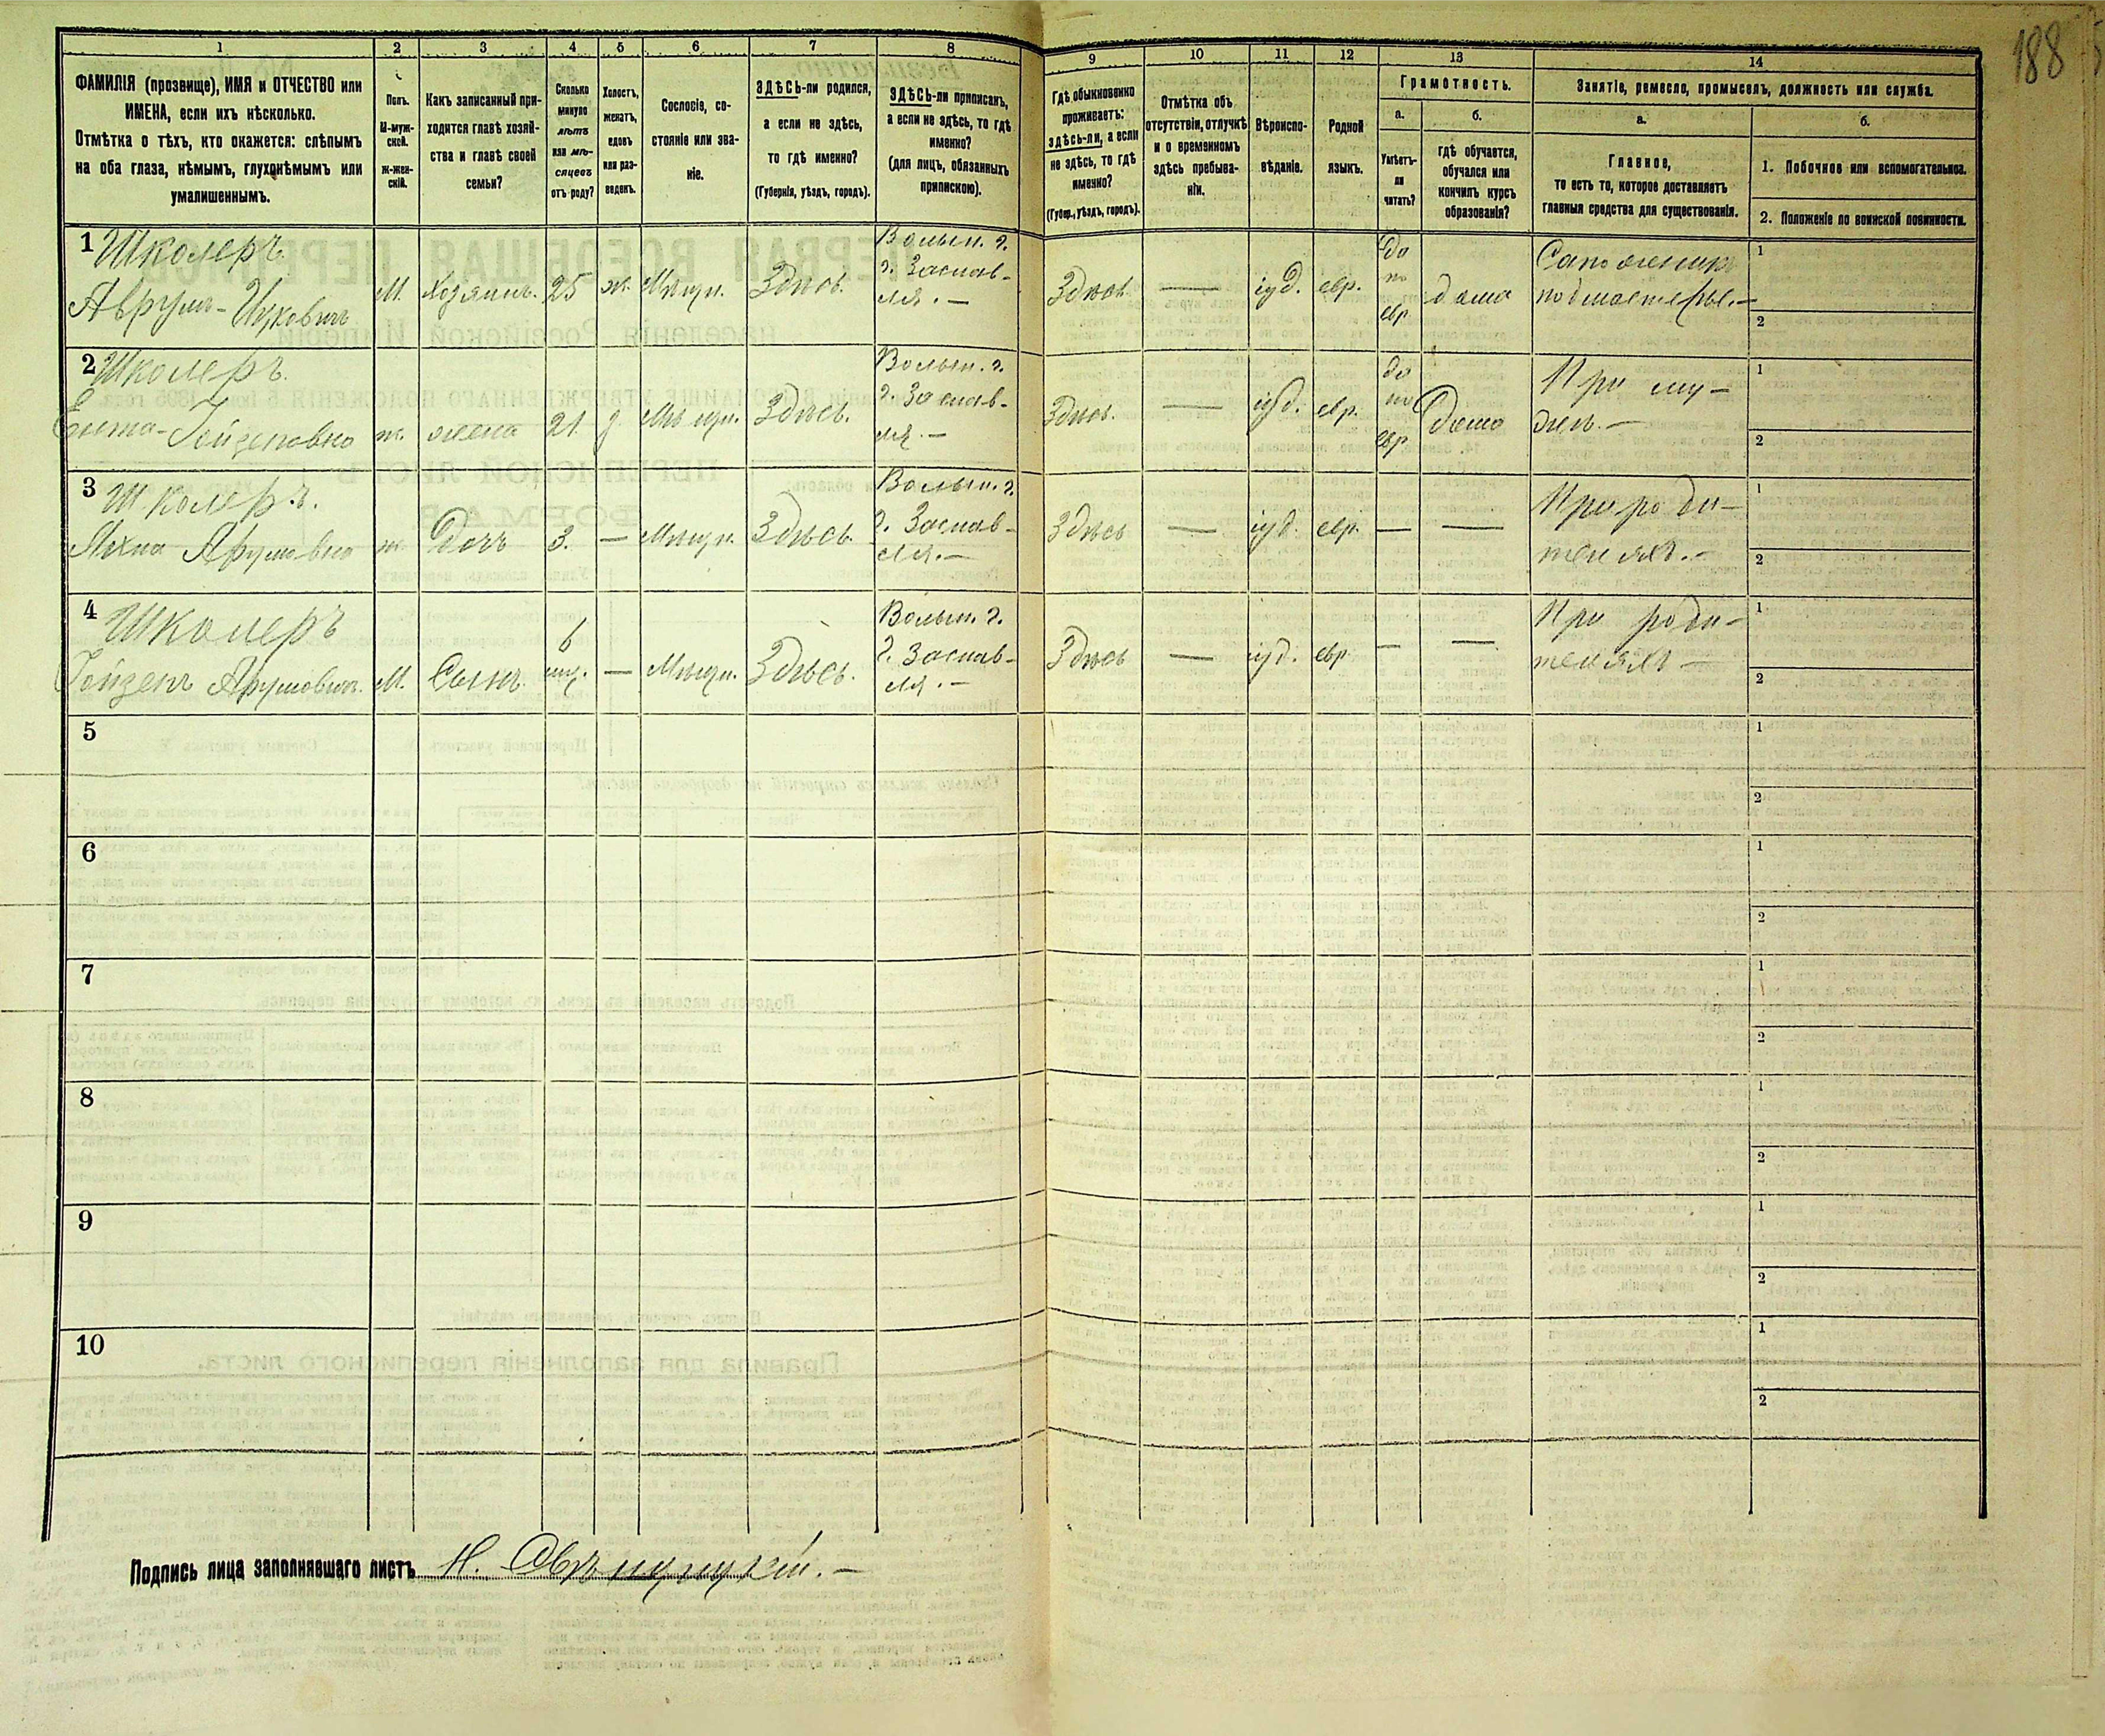 188
1 2 3 4 5 6 7 8 9 10 11 12 13 14
ФАМИЛІЯ (прозвище), ИМЯ и ОТЧЕСТВО или
ИМЕНА, если ихъ нѣсколько.
Отмѣтка о тѣхъ, кто окажется: слѣпымъ
на оба глаза, нѣмымъ, глухонѣмымъ или
умалишеннымъ.
Полъ.
М-муж-
ской.
Ж-жен-
скій.
Какъ записанный при-
ходится главѣ хозяй-
ства и главѣ своей
семьи?
Сколько
минуло
лѣтъ
или мѣ-
сяцевъ
отъ роду?
Холостъ,
женатъ,
вдовъ
или раз-
веденъ.
Сословіе, со-
стояніе или зва-
ніе.
ЗДѢСЬ-ли родился,
а если не здѣсь,
то гдѣ именно?
(Губернія, уѣздъ, городъ).
ЗДѢСЬ-ли приписанъ,
а если не здѣсь, то гдѣ
именно?
(для лицъ, обязанныхъ
припискою).
Гдѣ обыкновенно
проживаетъ:
здѣсь-ли, а если
не здѣсь, то гдѣ
именно?
(Губер., уѣздъ, городъ).
Отмѣтка объ
отсутствіи, отлучкѣ
и о временномъ
здѣсь пребыва-
ніи.
Вѣроиспо-
вѣданіе.
Родной
языкъ.
Грамотность.
а.
Умѣетъ-
ли
читать?
б.
гдѣ обучается,
обучался или
кончилъ курсъ
образованія?
Занятіе, ремесло, промыселъ, должность или служба.
а.
Главное,
то есть то, которое доставляетъ
главныя средства для существованія.
б.
1. Побочное или вспомогательное.
2. Положеніе по воинской повинности.
1 Школеръ
Аврумъ-Ицковичъ
М.
Хозяинъ.
25
ж.
Мѣщ.
Здѣсь.
Волын. г.
г. Заслав-
ля. —
Здѣсь
—
іуд.
евр.
да
по
евр
дома
Сапожникъ
подмастерье. —
1
2
2 Школеръ.
Ента-Гойзеповна
ж.
жена
21
Мѣщ.
Здѣсь.
Волын. г.
г. Заслав-
ля. —
Здѣсь.
—
іуд.
евр.
да
по
евр
Дома
При му-
жѣ. —
1
2
3 Школеръ.
Арумовна
ж.
Дочь
3.
—
Мѣщ.
Здѣсь.
Волын. г.
г. Заслав-
ля. —
Здѣсь
—
іуд.
евр.
—
—
При роди-
теляхъ. —
1
2
4 Школеръ
Гойзепъ Арумовичъ.
М.
Сынъ.
6
мц.
—
Мѣщ.
Здѣсь.
Волын. г.
г. Заслав-
ля. —
Здѣсь
—
іуд.
евр
—
—
При роди-
теляхъ —
1
2
5
1
2
6
1
2
7
1
2
8
1
2
9
1
2
10
1
2
Подпись лица заполнявшаго листъ Н.